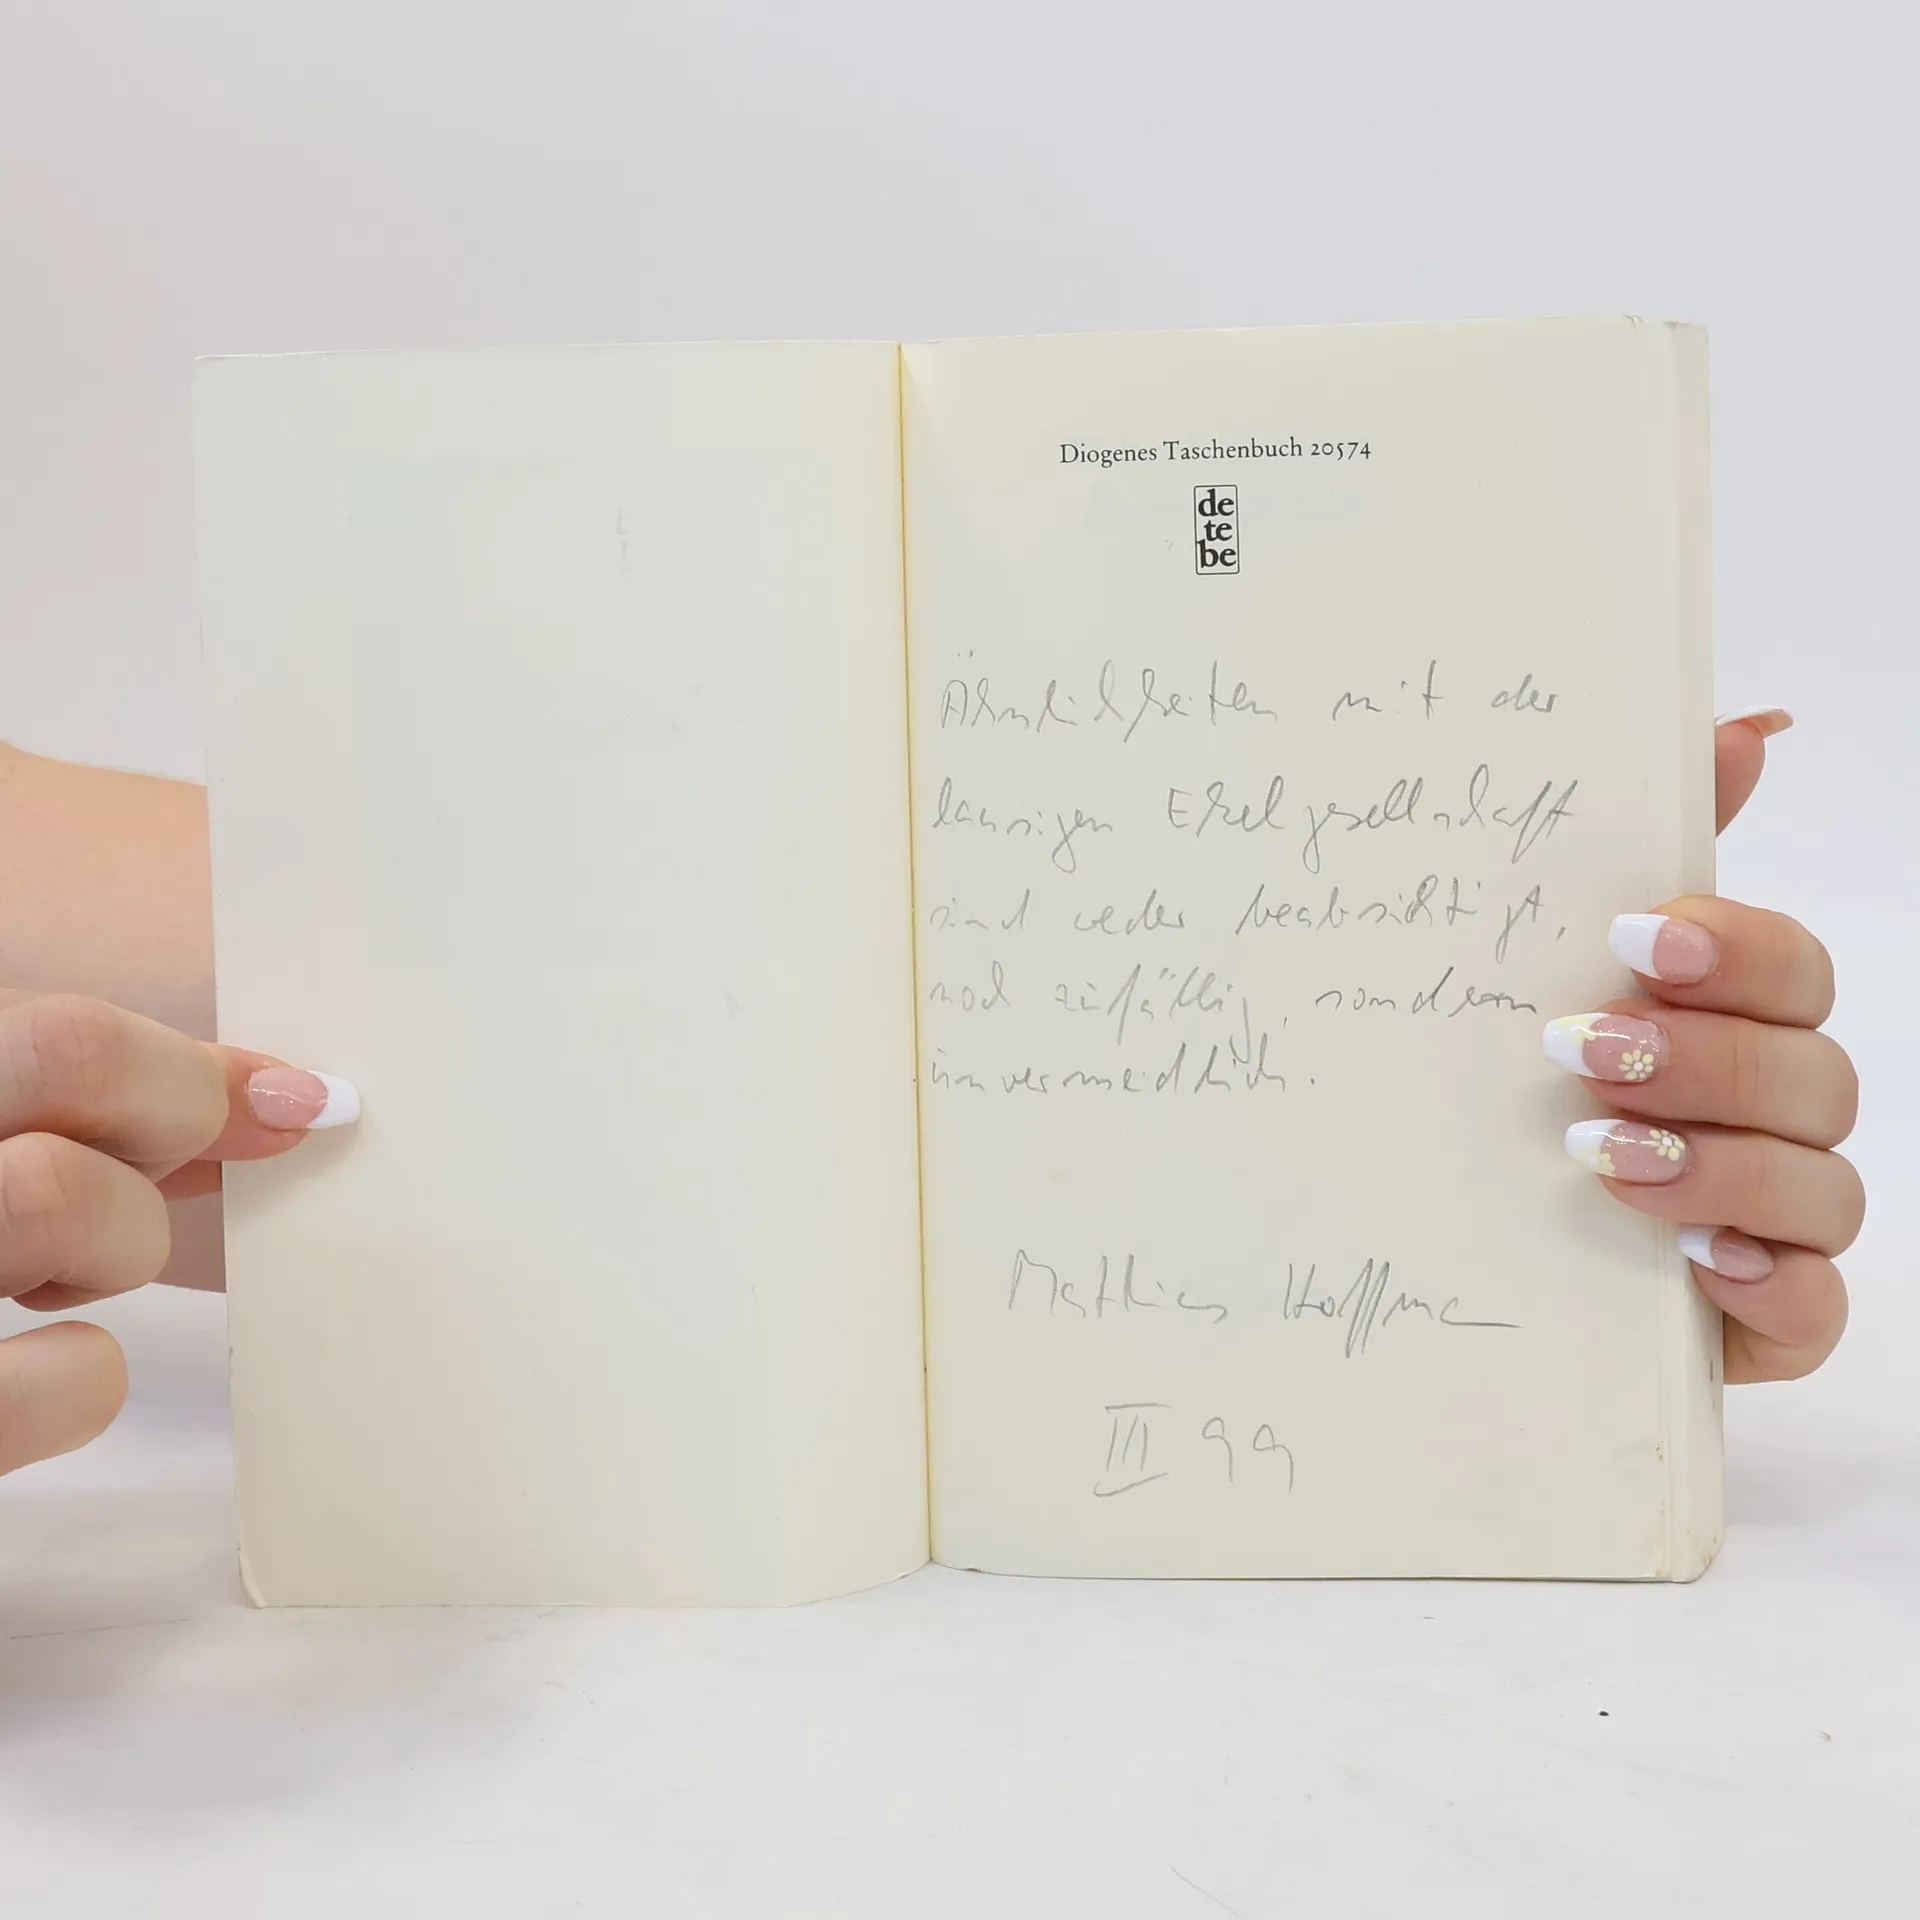 Diogenes Taschenbuch 20574
de
te
be
Ähnlichkeiten mit der
lausigen Ekelgesellschaft
sind weder beabsichtigt,
noch zufällig, sondern
unvermeidlich.
Matthias Hoffma
III 99